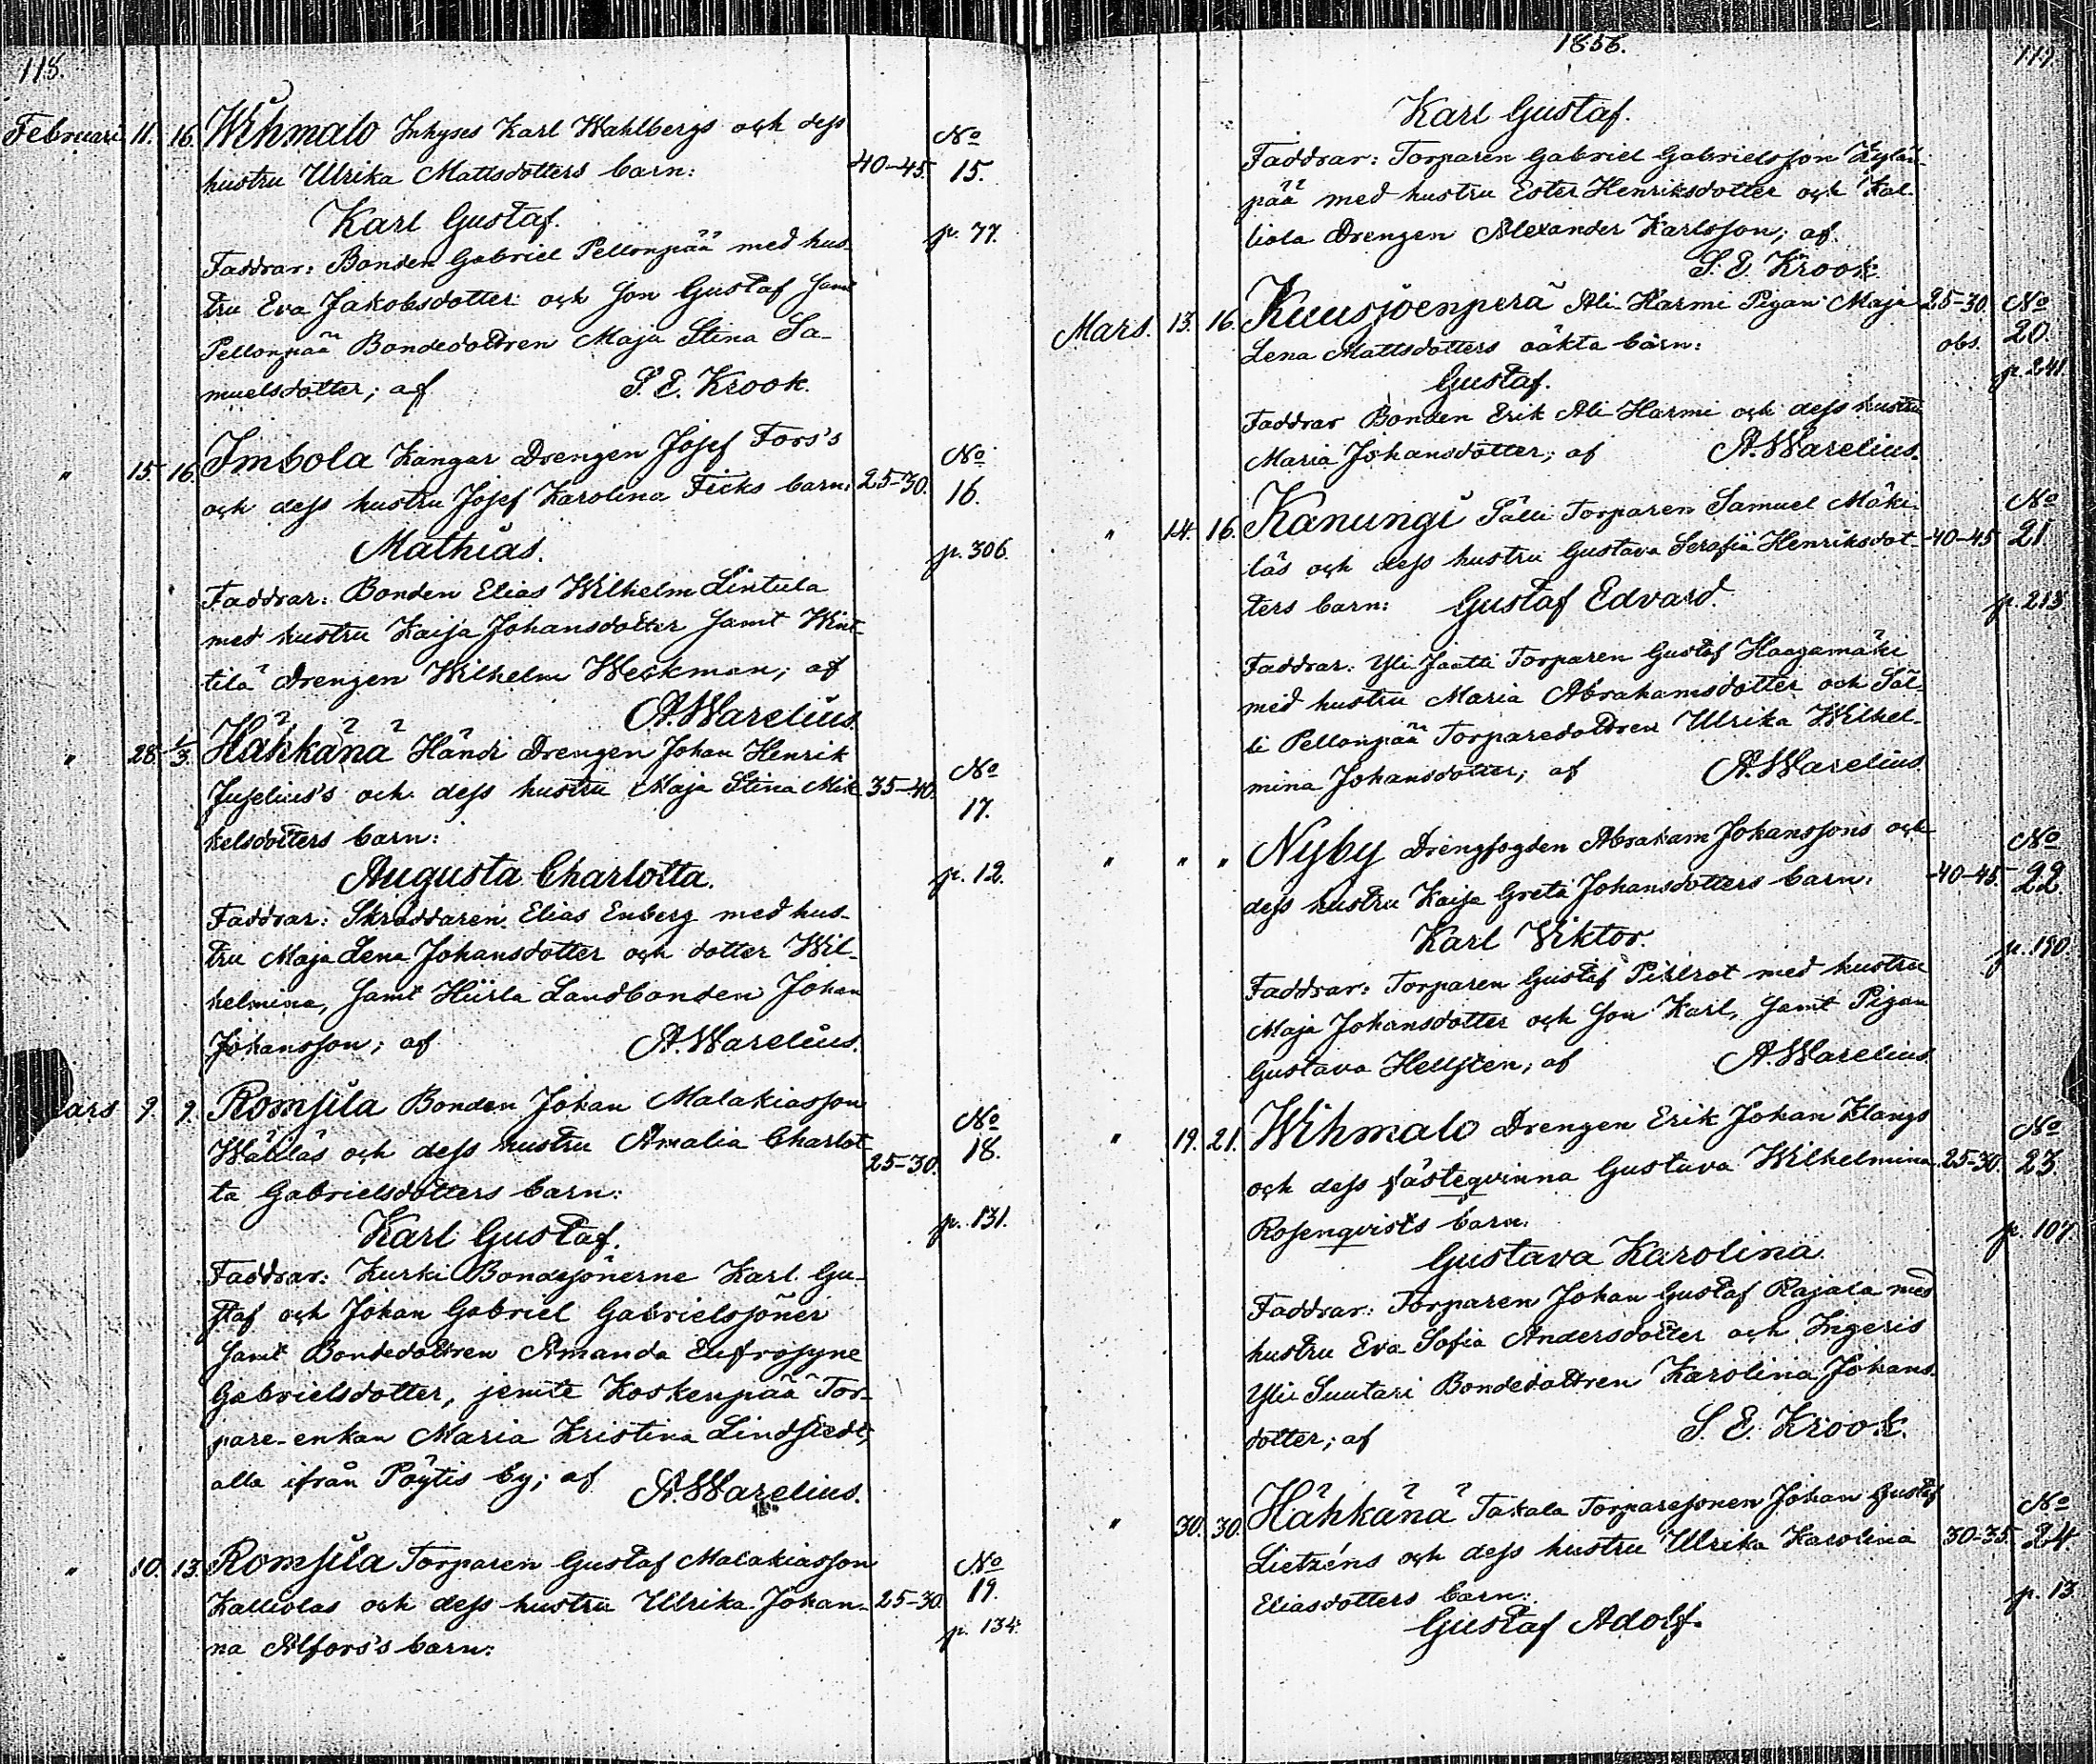 118.
Februari 11. 16. Wihmalo Inhyses Karl Wahlbergs och dess
hustru Ulrika Mattsdotters barn: 40-45. No 15.
Karl Gustaf. p. 77.
Faddrar: Bonden Gabriel Pellonpää med hus-
tru Eva Jakobsdotter och son Gustaf samt
Pellonpää Bondedottren Maja Stina Sa-
muelsdotter; af S. E. Krook.
" 15. 16. Imbola Kangar Drengen Josef Fors's
och dess hustru Josef Karolina Ficks barn: 25-30. No 16.
Mathias. p. 306.
Faddrar: Bonden Elias Wilhelm Lintula
med hustru Kaisa Johansdotter samt Wint-
tilä Drengen Wilhelm Weckman; af
A. Warelius.
" 28. 1/3. Hähkänä Händi Drengen Johan Henrik
Juselius's och dess hustru Maja Stina Mik- 35-40. No 17.
kelsdotters barn:
Augusta Charlotta. p. 12.
Faddrar: Skräddaren Elias Enberg med hus-
tru Maja Lena Johansdotter och dotter Wil-
helmina, samt Hiirla Landbonden Johan
Johansson; af A. Warelius.
ars 9. 9. Romsila Bonden Johan Malakiasson
Wäliläs och dess hustru Amalia Charlot- 25-30. No 18.
ta Gabrielsdotters barn:
Karl Gustaf. p. 131.
Faddrar: Kurki Bondesönerne Karl Gu-
staf och Johan Gabriel Gabrielssöner
samt Bondedottren Amanda Eufrosyne
Gabrielsdotter, jemte Koskenpää Tor-
pare-enkan Maria Kristina Lindstedt,
alla ifrån Pöytis by; af A. Warelius.
" 10. 13. Romsila Torparen Gustaf Malakiasson
Kalliolas och dess hustru Ulrika Johan- 25-30. No 19.
na Alfors's barn: p. 134.
1856.
119.
Karl Gustaf.
Faddrar: Torparen Gabriel Gabrielsson Kylän-
pää med hustru Ester Henriksdotter och Kal-
liola Drengen Alexander Karlsson; af
S. E. Krook.
Mars. 13. 16. Kuusjoenperä Ali-Harmi Pigan Maja 25-30. No 20.
Lena Mattsdotters oäkta barn: obs.
Gustaf. p. 241.
Faddrar Bonden Erik Ali-Harmi och dess hustru
Maria Johansdotter; af A. Warelius.
" 14. 16. Kanungi Sälli Torparen Samuel Mäki-
läs och dess hustru Gustava Serafia Henriksdot- 40-45 No 21
ters barn: Gustaf Edvard. p. 213.
Faddrar: Yli-Jaatti Torparen Gustaf Haagamäki
med hustru Maria Abrahamsdotter och Säl-
li Pellonpää Torparedottren Ulrika Wilhel-
mina Johansdotter; af A. Warelius.
" " " Nyby Drengfogden Abraham Johanssons och
dess hustru Kaisa Greta Johansdotters barn: 40-45. No 22.
Karl Viktor. p. 190.
Faddrar: Torparen Gustaf Pihlrot med hustru
Maja Johansdotter och son Karl, samt Pigan
Gustava Hellsten; af A. Warelius
" 19. 21. Wihmalo Drengen Erik Johan Klangs
och dess fästeqvinna Gustava Wilhelmina 25-30. No 23.
Rosenqvists barn:
Gustava Karolina. p. 107.
Faddrar: Torparen Johan Gustaf Rajala med
hustru Eva Sofia Andersdotter och Ingeris
Yli Suutari Bondedottren Karolina Johans-
dotter; af S. E. Krook.
" 30. 30. Hähkänä Takala Torparesonen Johan Gustaf
Lietzéns och dess hustru Ulrika Karolina 30-35. No 24.
Eliasdotters barn: p. 13.
Gustaf Adolf.